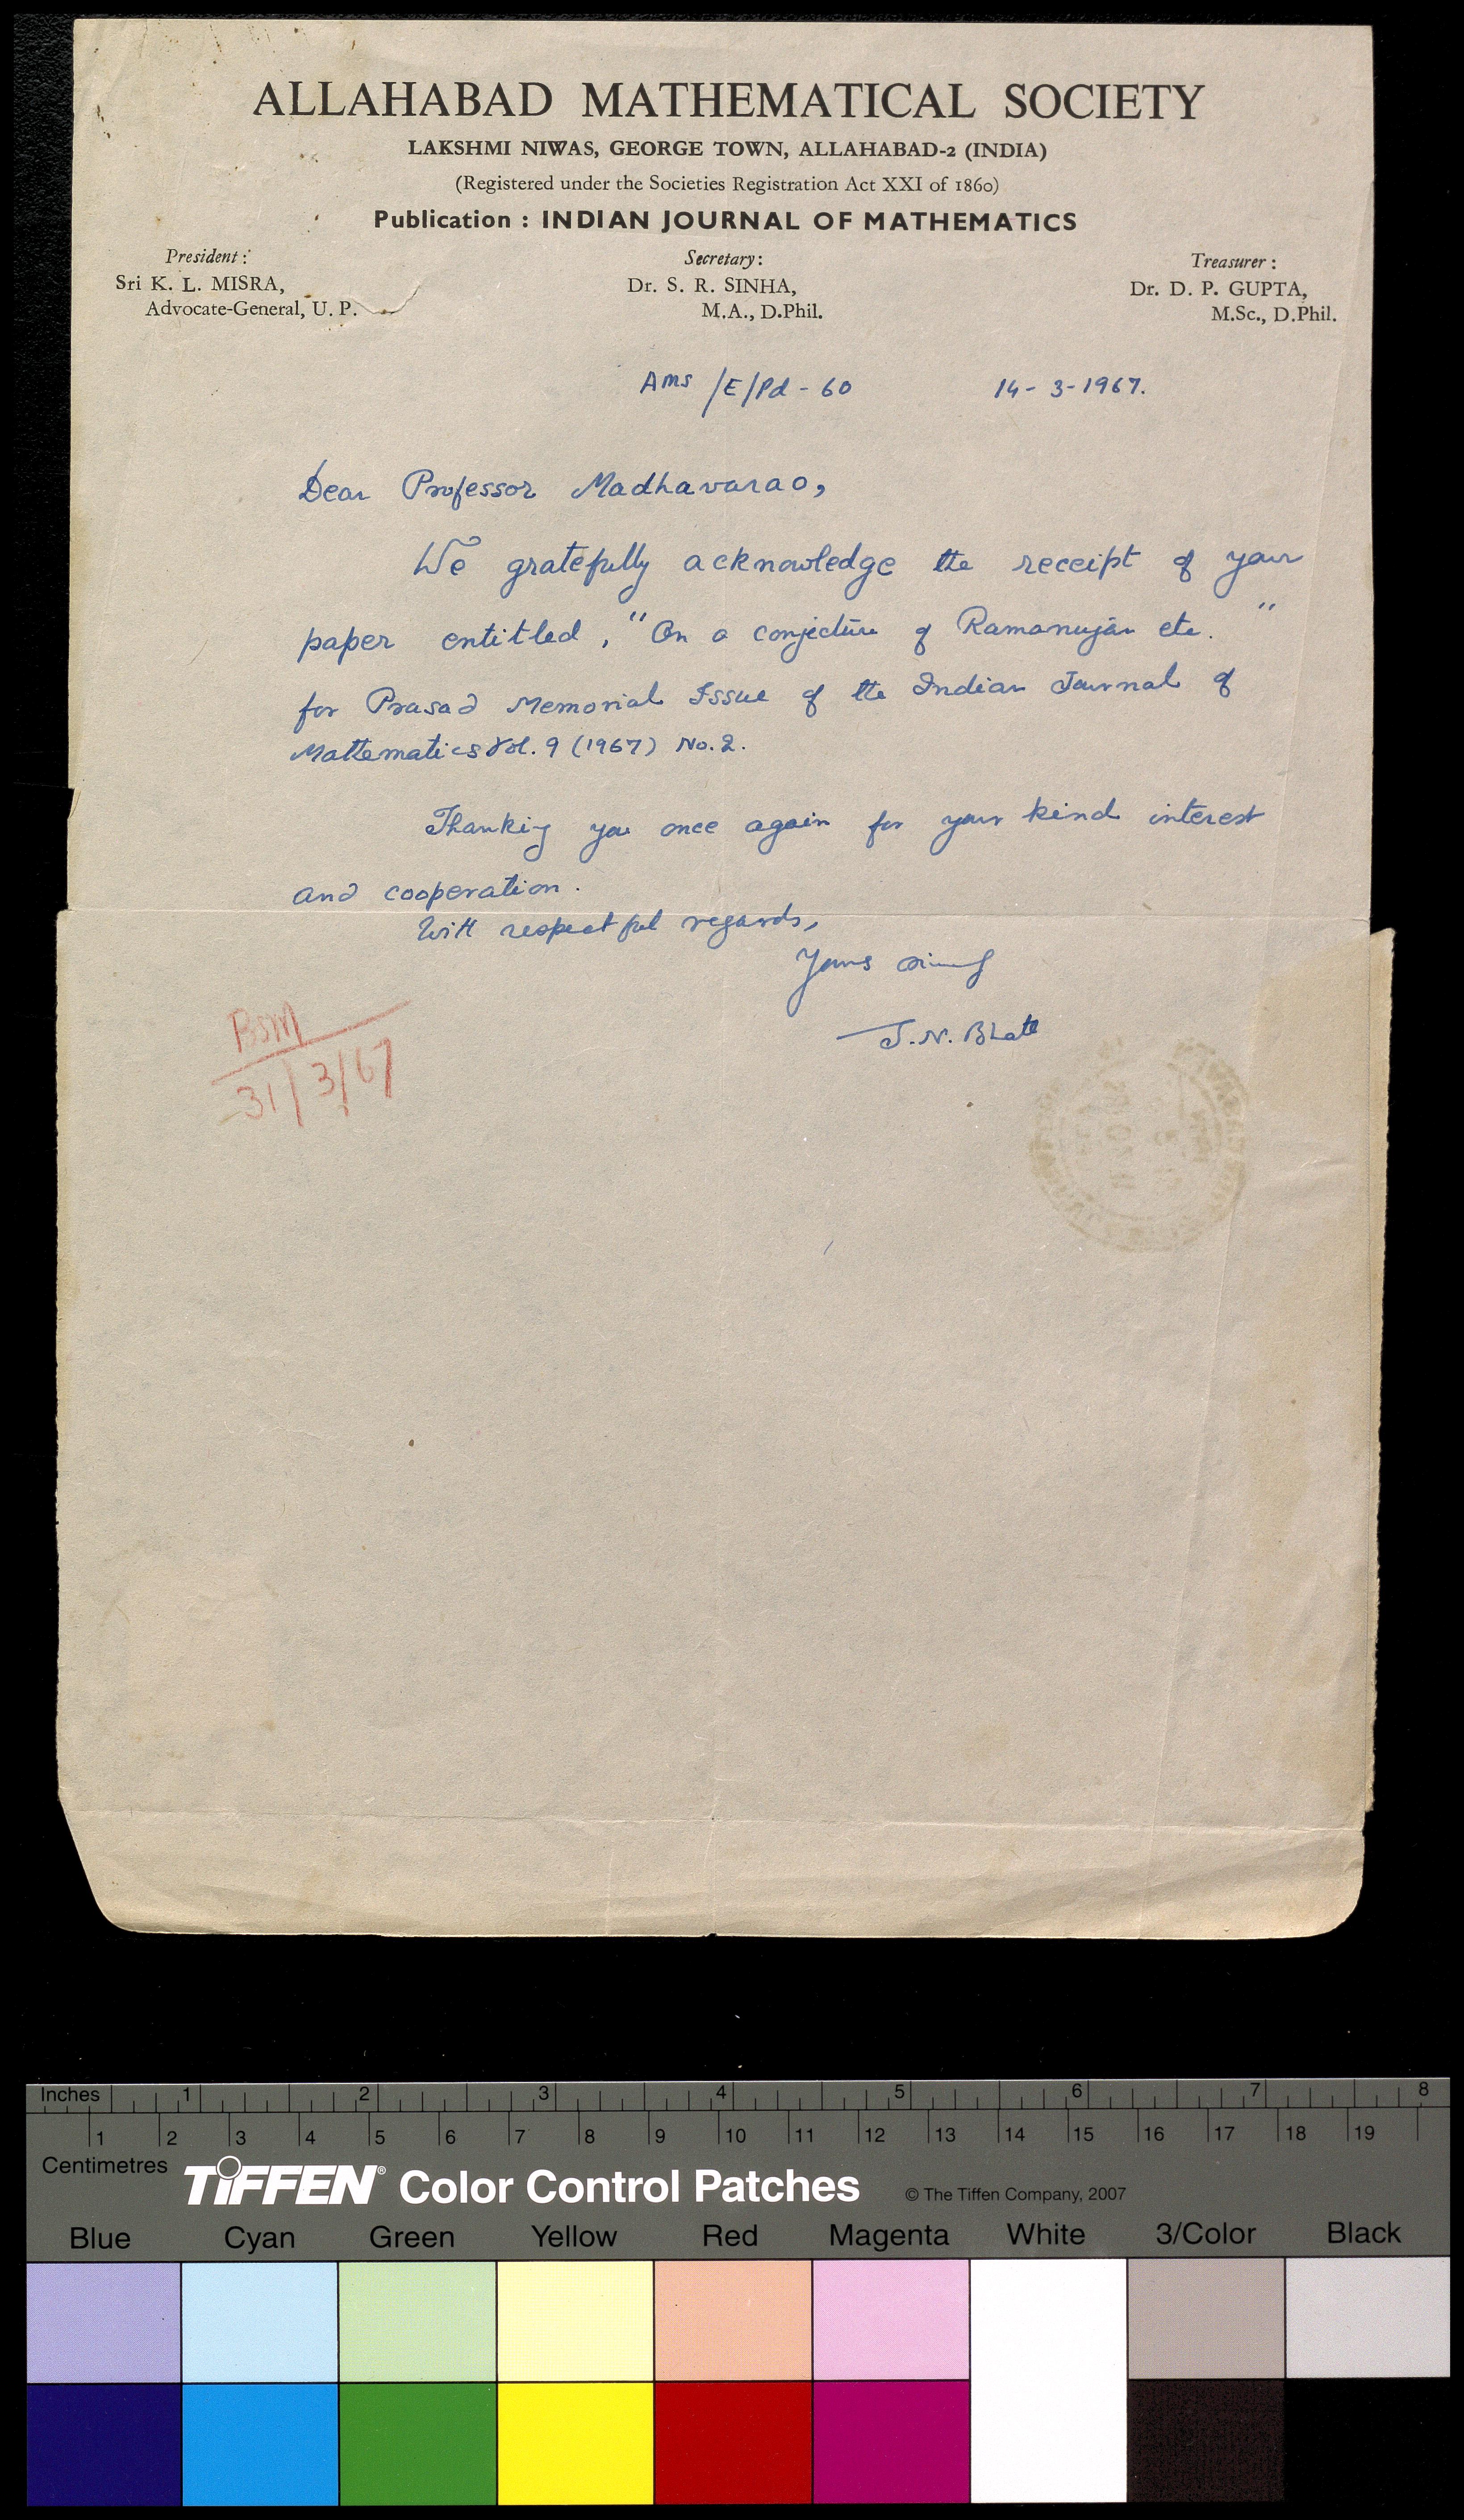 ALLAHABAD MATHEMATICAL SOCIETY
LAKSHMI NIWAS, GEORGE TOWN, ALLAHABAD-2 (INDIA)
(Registered under the Societies Registration Act XXI of 1860)
Publication : INDIAN JOURNAL OF MATHEMATICS
President :
Sri K. L. MISRA,
Advocate-General, U. P.
Secretary :
Dr. S. R. SINHA,
M.A., D.Phil.
Treasurer :
Dr. D. P. GUPTA,
M.Sc., D.Phil.
Ams /E/Pd - 60 14- 3-1967.
Dear Professor Madhavarao,
We gratefully acknowledge the receipt of your
paper entitled, "On a conjecture of Ramanujan etc."
for Prasad Memorial Issue of the Indian Journal of
Mathematics Vol. 9 (1967) No. 2.
Thanking you once again for your kind interest
and cooperation.
With respectful regards,
Yours
J. N. Bhatt
BSM
31/3/67
Inches 1 2 3 4 5 6 7 8
1 2 3 4 5 6 7 8 9 10 11 12 13 14 15 16 17 18 19
Centimetres
TIFFEN® Color Control Patches © The Tiffen Company, 2007
Blue Cyan Green Yellow Red Magenta White 3/Color Black